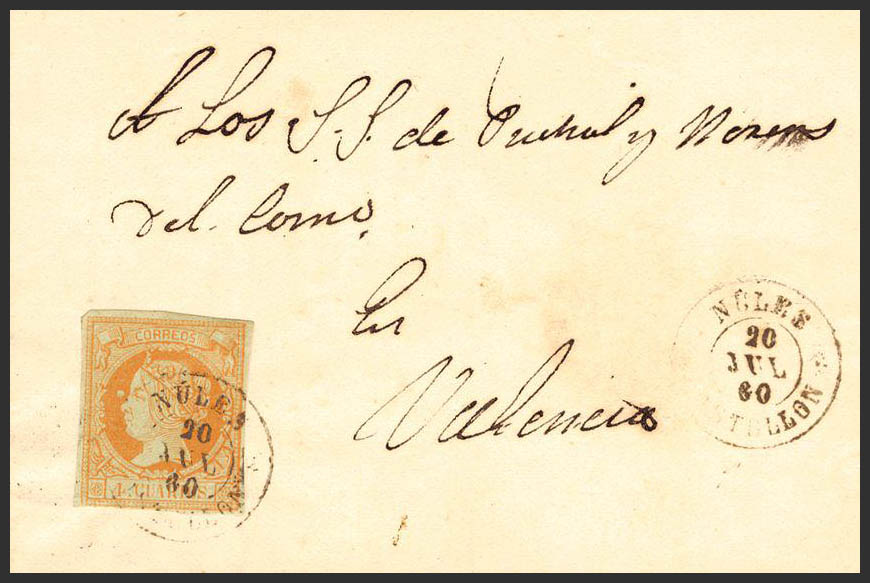 A Los S.S. de Puchal y Moreno
Del Comº.
En
Valencia
NULES
20
JUL
60
CASTELLON
CORREOS
4 CUARTOS
NULES
20
JUL
60